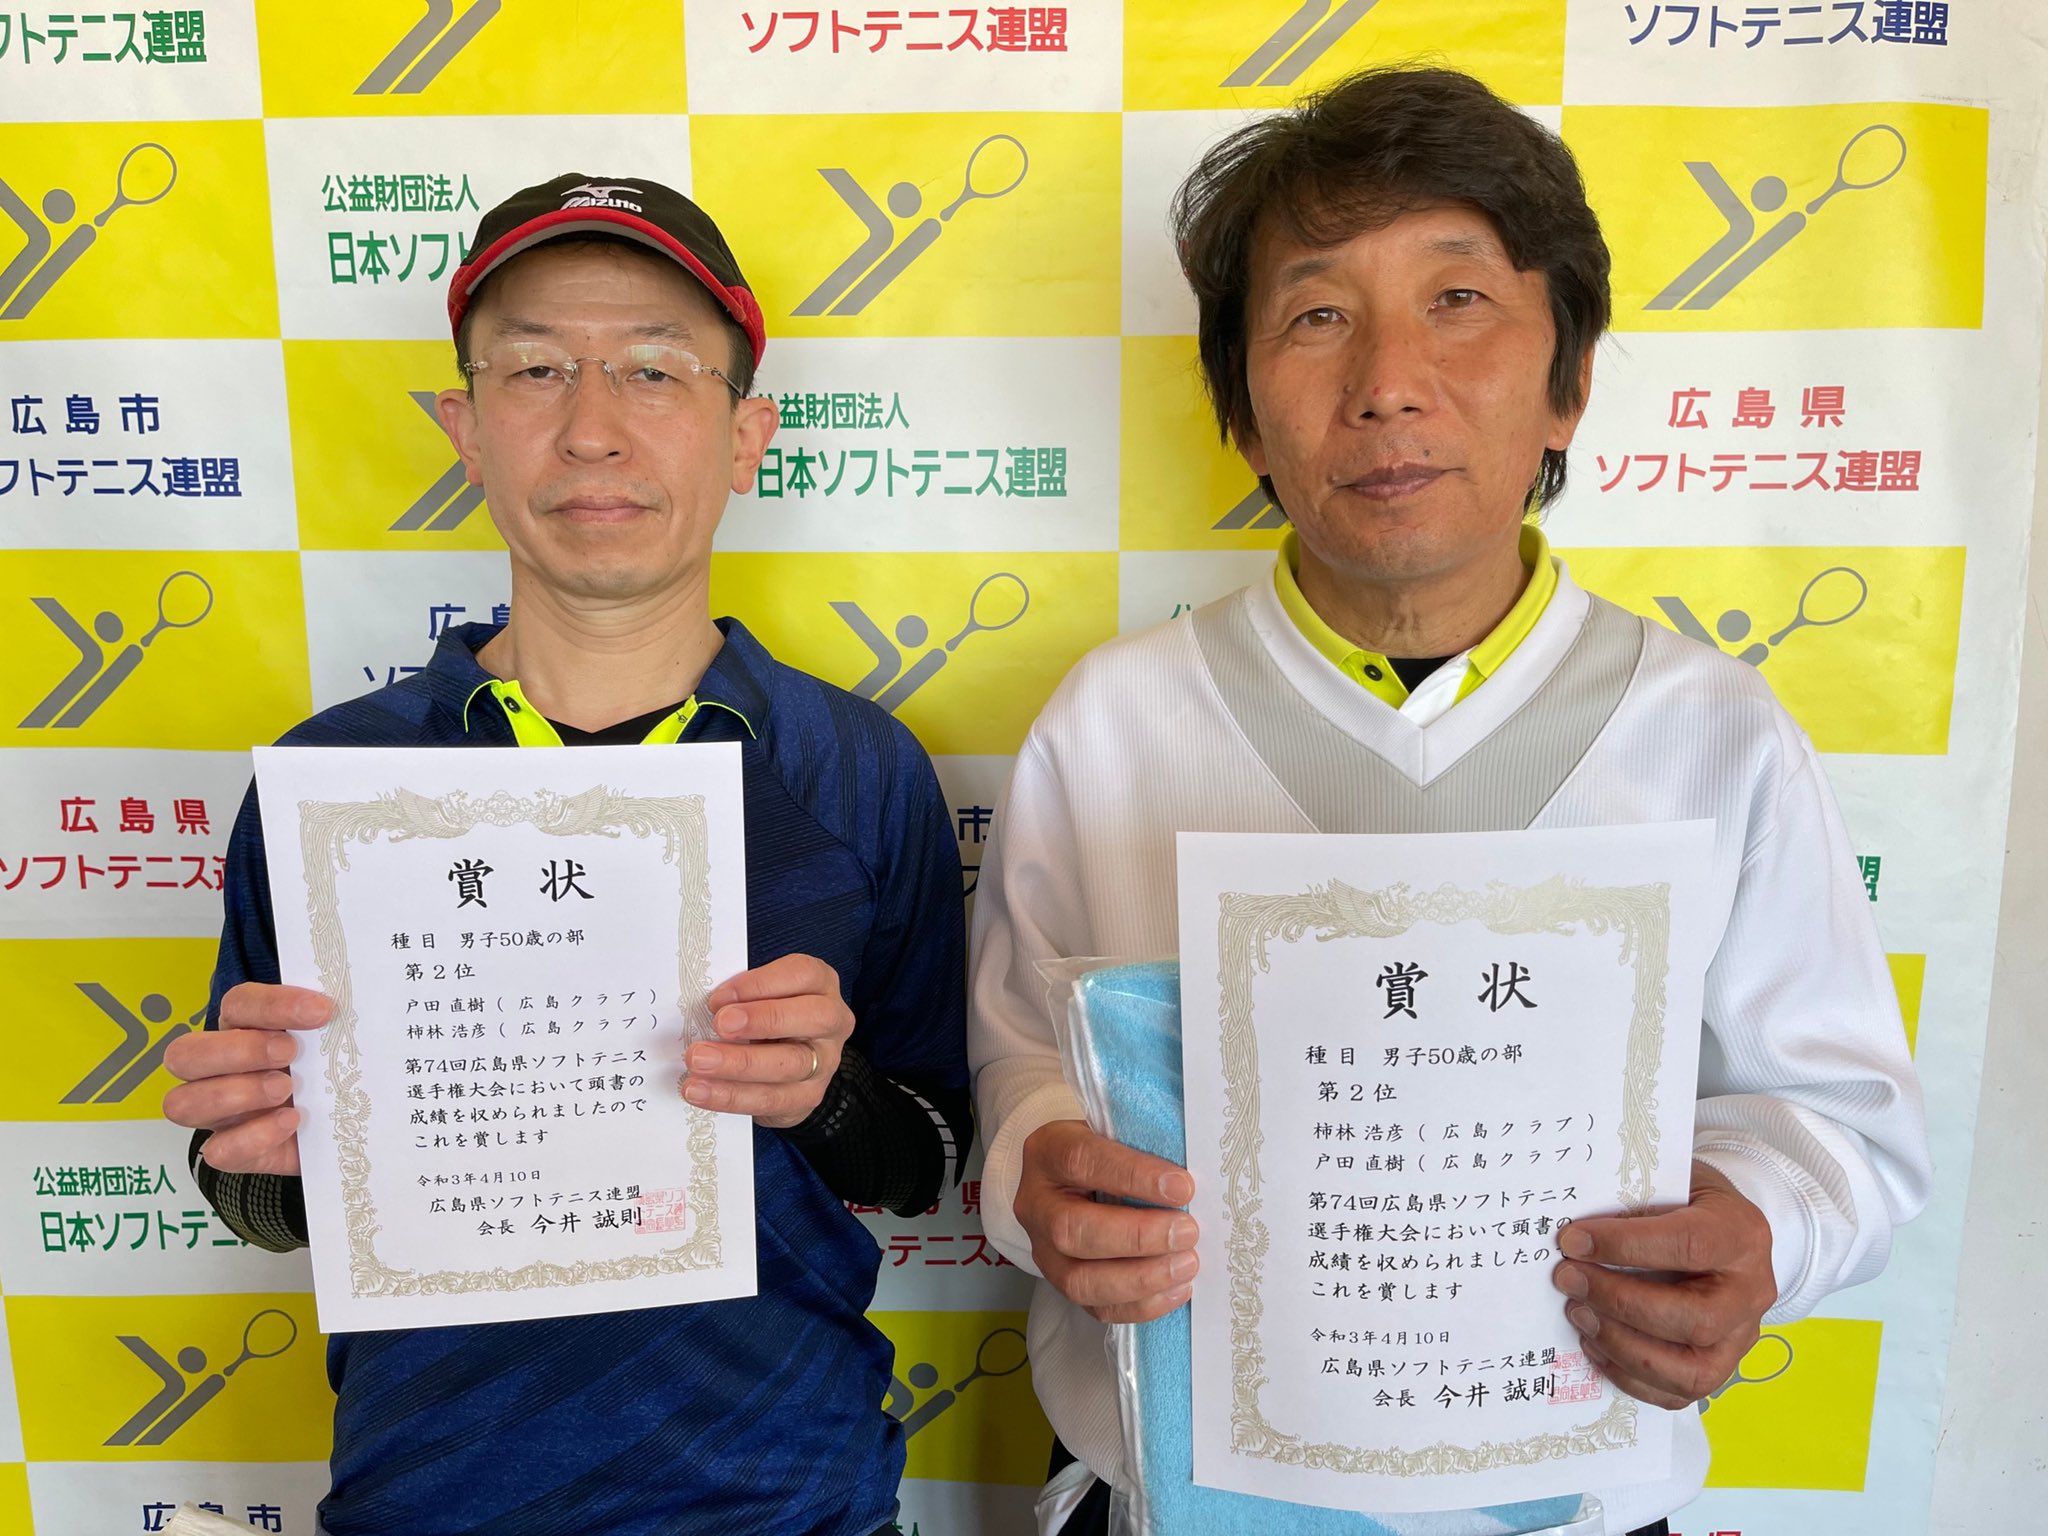 フトテニス連盟
ソフトテニス連盟
ソフトテニス連盟
公益財団法人
日本ソフト
MIZUNO
広島市
フトテニス連盟
公益財団法人
日本ソフトテニス連盟
広島県
ソフトテニス連盟
広島県
ソフトテニス
市
盟
公益財団法人
日本ソフトテニ
広島県
テニス
広島市
公益財団法人
広島県
賞状
種目 男子50歳の部
第2位
戸田 直樹 ( 広島クラブ )
柿林 浩彦 ( 広島クラブ )
第74回広島県ソフトテニス
選手権大会において頭書の
成績を収められましたので
これを賞します
令和3年4月10日
広島県ソフトテニス連盟
会長 今井 誠則
賞状
種目 男子50歳の部
第2位
柿林 浩彦 ( 広島クラブ )
戸田 直樹 ( 広島クラブ )
第74回広島県ソフトテニス
選手権大会において頭書の
成績を収められましたので
これを賞します
令和3年4月10日
広島県ソフトテニス連盟
会長 今井 誠則